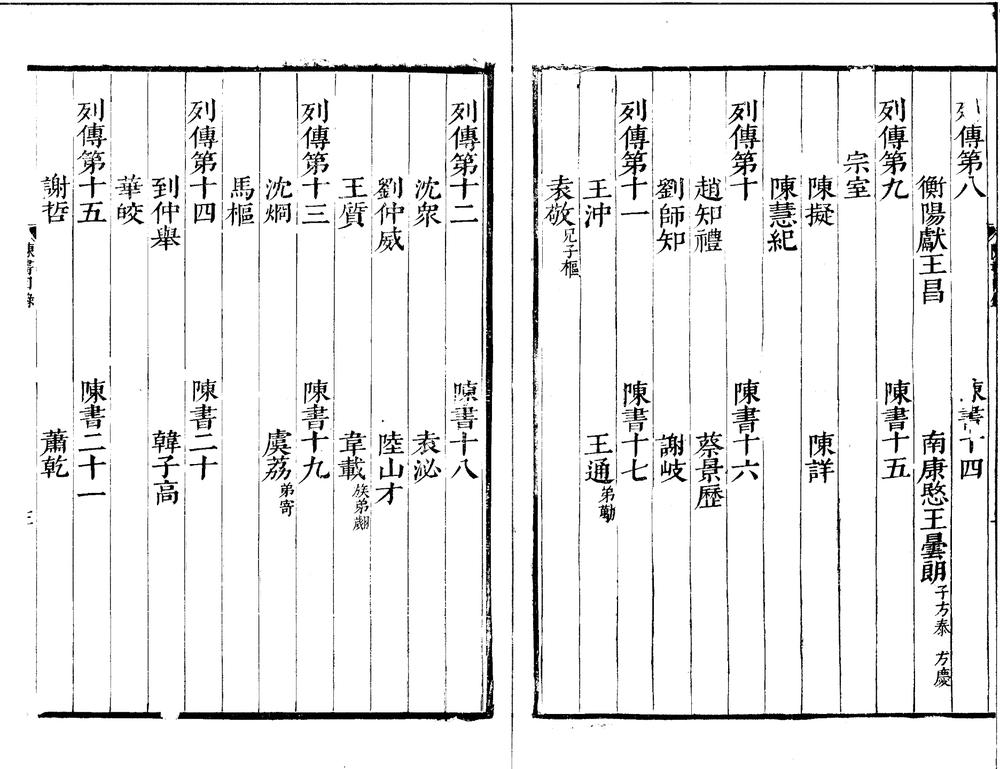 列傳第八 陳書十四
衡陽獻王昌 南康愍王曇朗子方泰 方慶
列傳第九 陳書十五
宗室
陳擬 陳詳
陳慧紀
列傳第十 陳書十六
趙知禮 蔡景歷
劉師知 謝岐
列傳第十一 陳書十七
王沖 王通弟勱
袁敬兄子樞
列傳第十二 陳書十八
沈衆 袁泌
劉仲威 陸山才
王質 韋載族弟翽
列傳第十三 陳書十九
沈烱 虞荔弟寄
馬樞
列傳第十四 陳書二十
到仲舉 韓子高
華皎
列傳第十五 陳書二十一
謝哲 蕭乾
陳書目錄 三